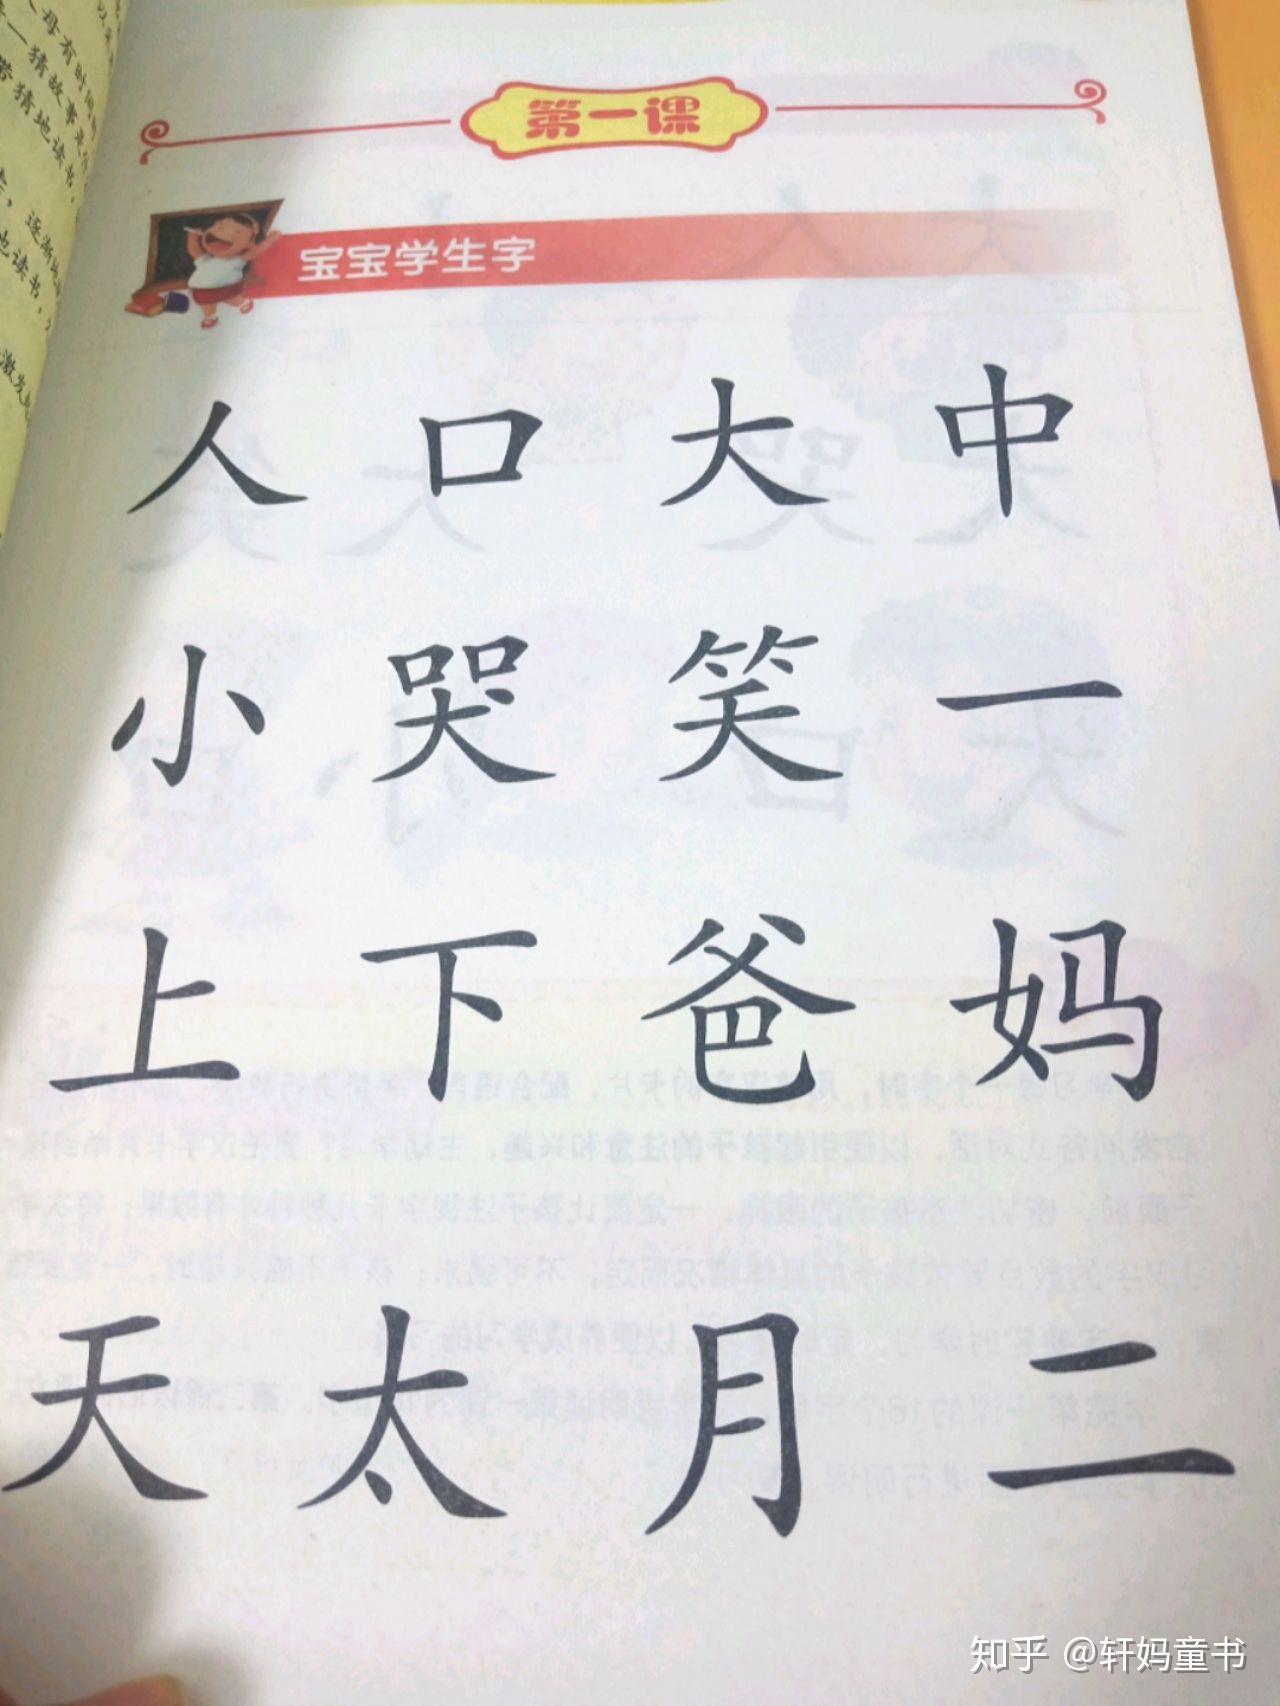 第一课
宝宝学生字
人 口 大 中
小 哭 笑 一
上 下 爸 妈
天 太 月 二
知乎 @轩妈童书